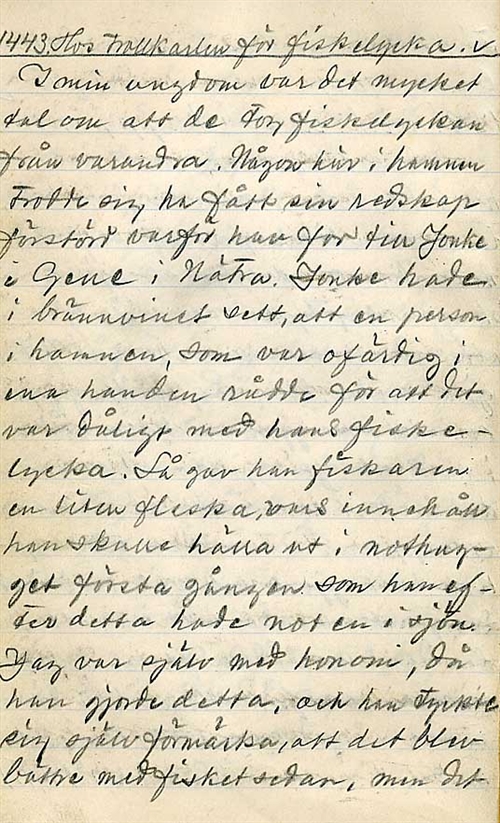 1443. Hos trollkarlen för fiskelycka. v
I min ungdom var det mycket
tal om att de tog fiskelyckan
från varandra. Någon här i hamnen
trodde sig ha fått sin redskap
förstörd varför han for till Jonke
i Gene i Nätra. Jonke hade
i brännvinet sett, att en person
i hamnen, som var ofärdig i
ena handen rådde för att det
var dåligt med hans fiske-
lycka. Så gav han fiskaren
en liten fleska, vars innehåll
han skulle hälla ut i nothug-
get första gången som han ef-
ter detta hade noten i sjön.
Jag var själv med honom, då
han gjorde detta, och han tyckte
sig själv förmärka, att det blev
bättre med fisket sedan, men det